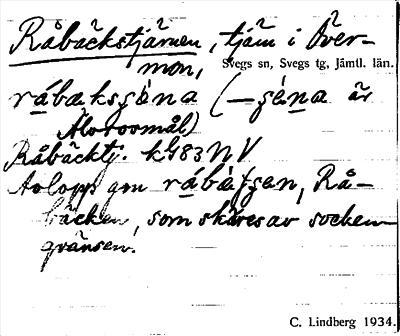 Råbäckstjärnen, tjärn i Över-
mon, Svegs sn, Svegs tg, Jämtl. län.
råbæksʂèna (–ʂèna är
Älvrosmål)
Råbäcktj. kG83NV
Avlopp gm råbæ̀tʂen, Rå-
bäcken, som skäres av socken-
gränsen.
C. Lindberg 1934.